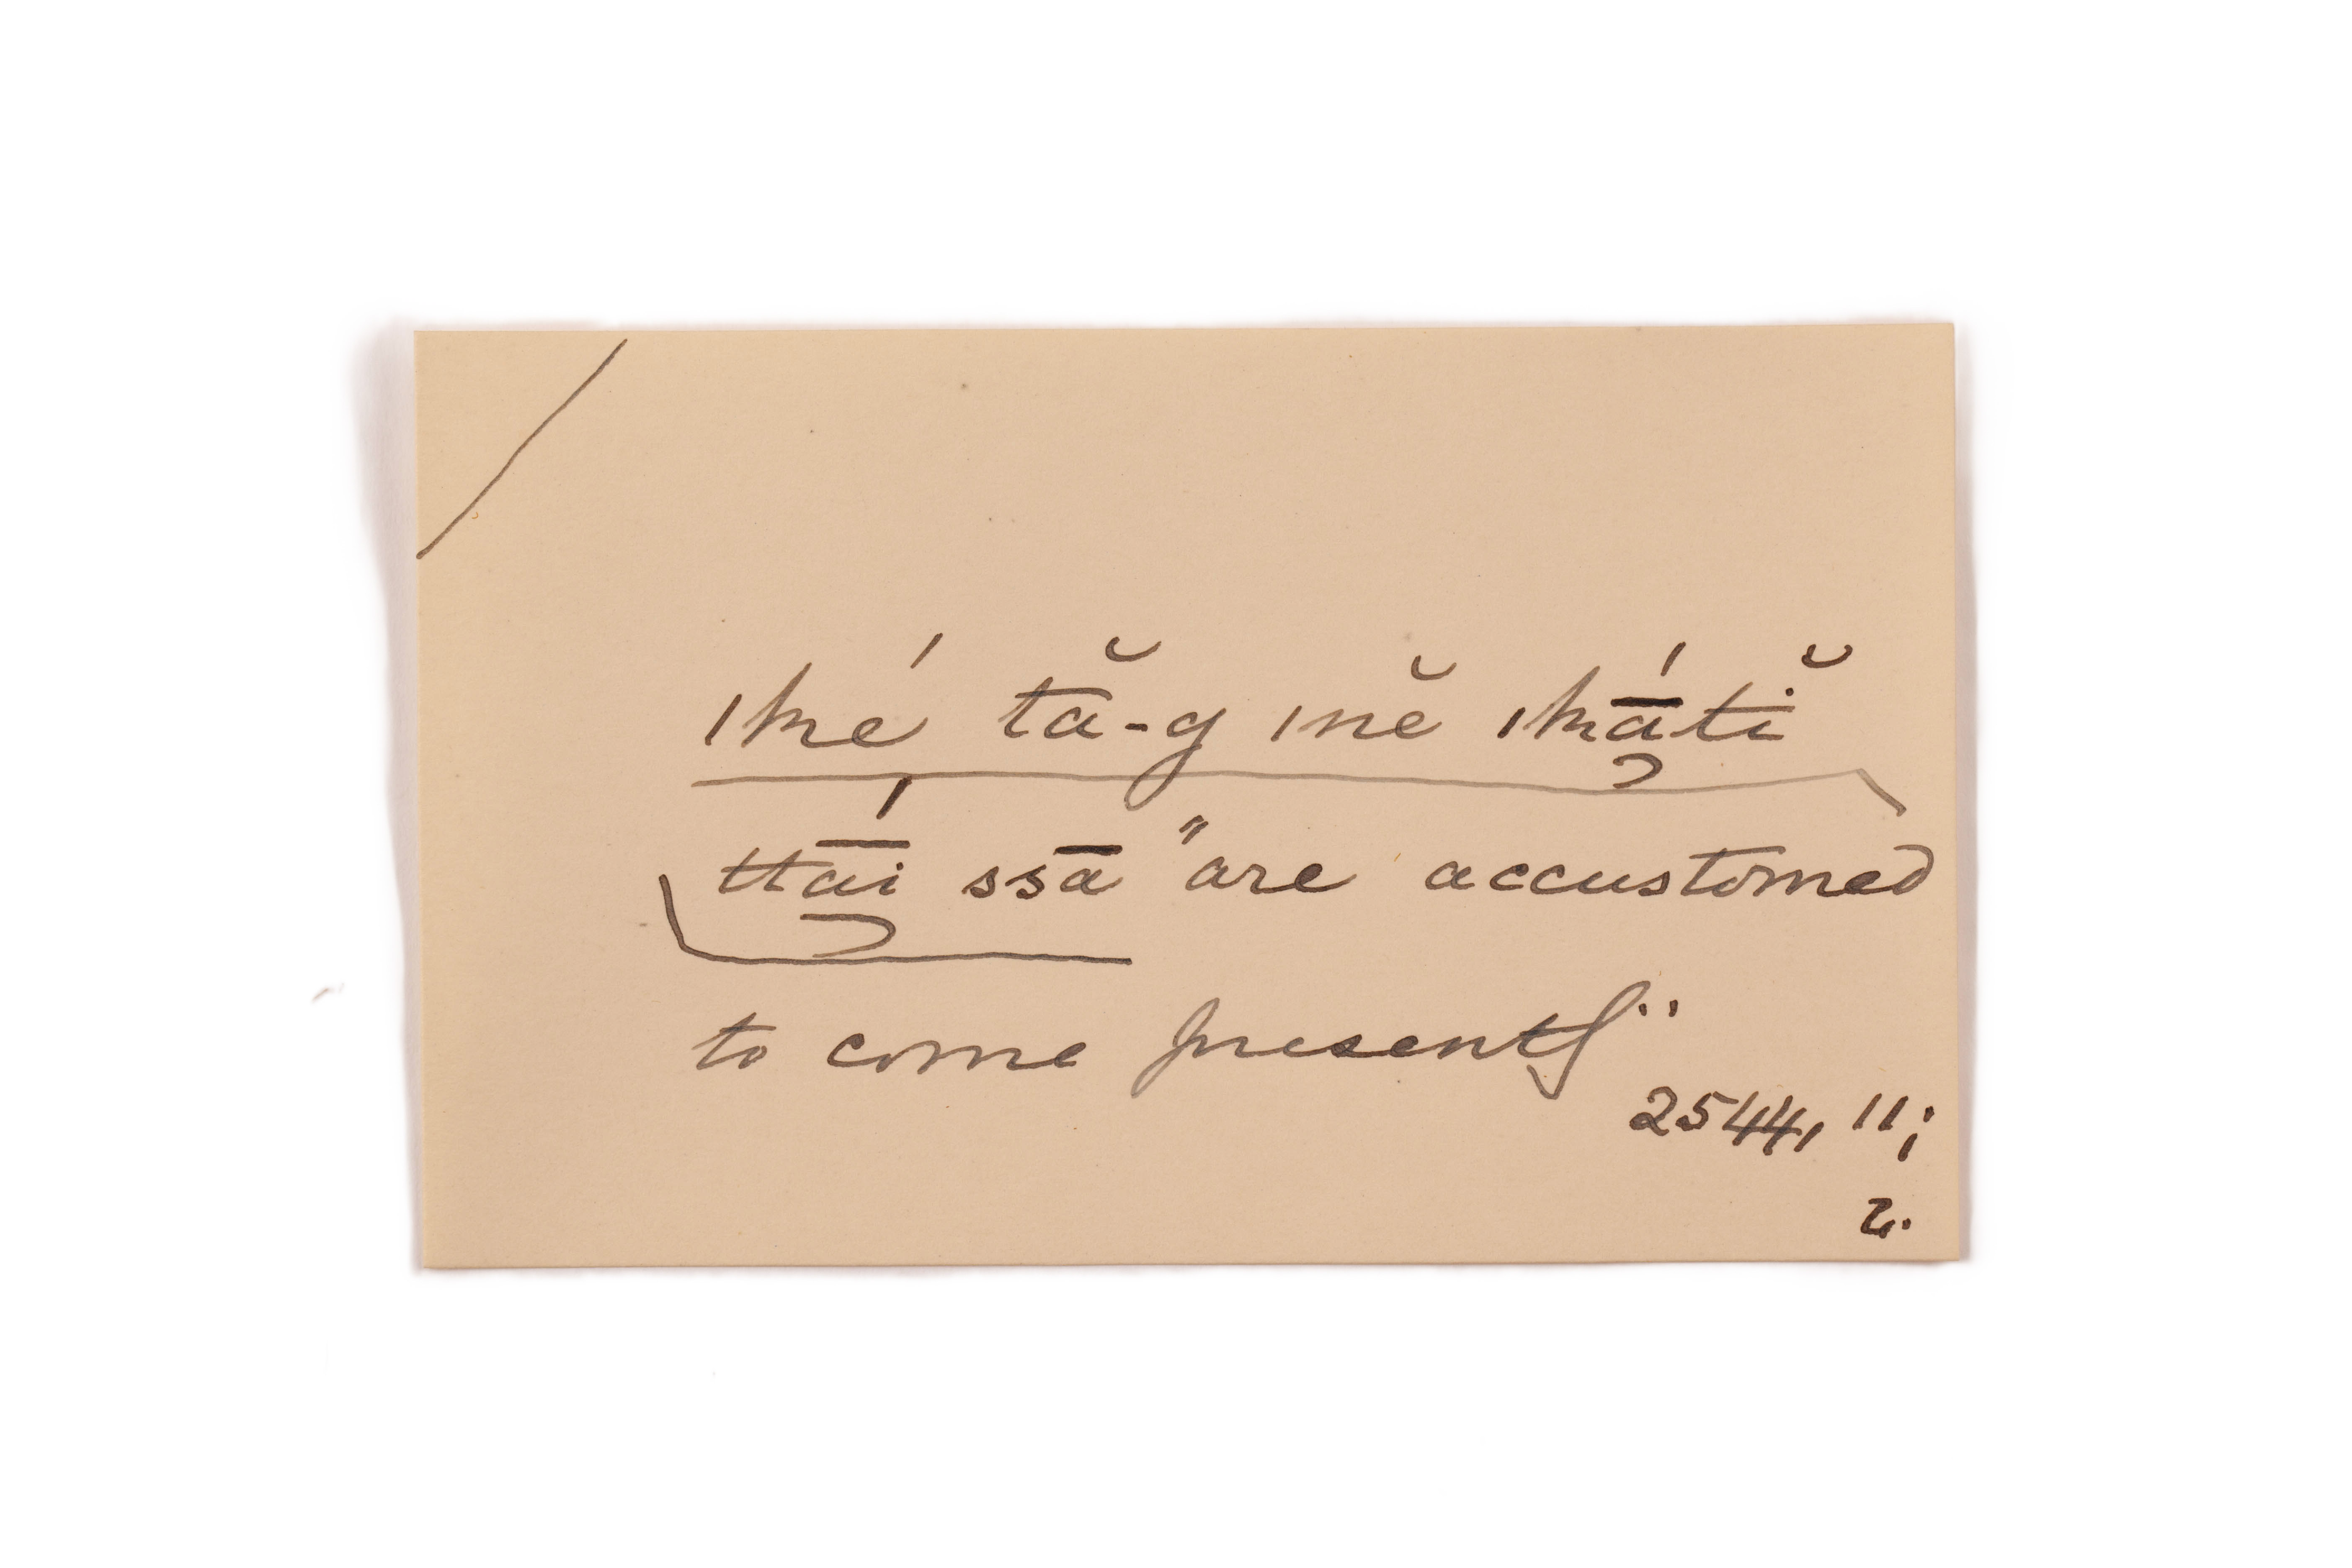 ıhé tă-g ınĕ ıhą̄́tĭ
ttą̄́i ssā "are accustomed
to come presently"
2544, 11;
2.